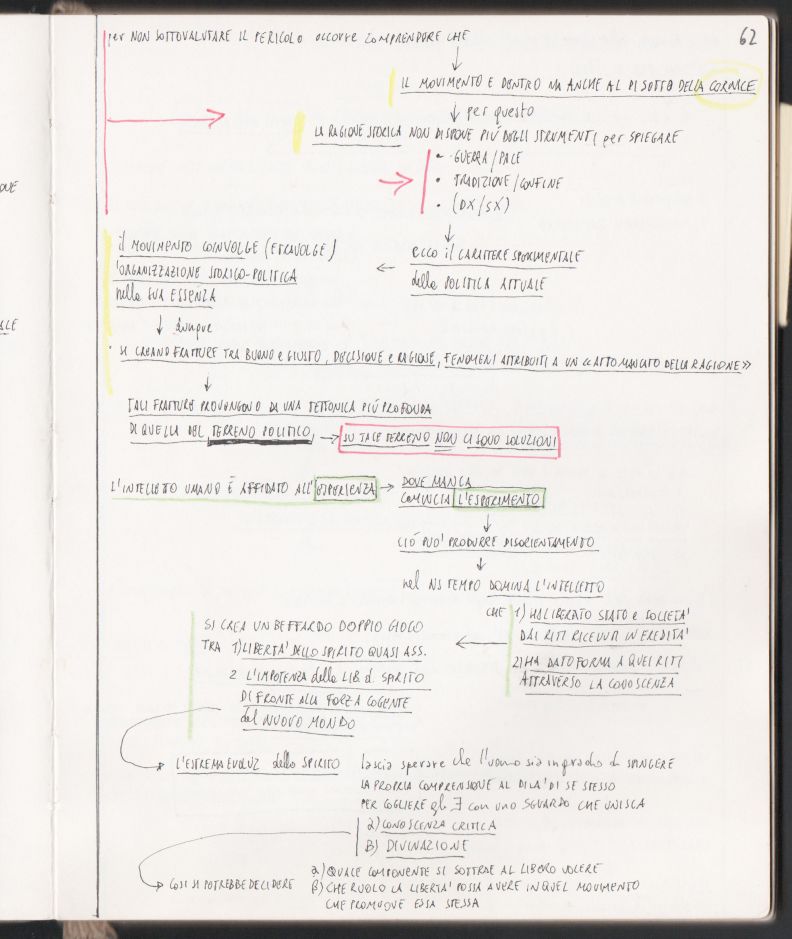 62
per NON SOTTOVALUTARE IL PERICOLO occorre COMPRENDERE CHE
IL MOVIMENTO È DENTRO MA ANCHE AL DI SOTTO DELLA CORNICE
per questo
LA RAGIONE STORICA NON DISPONE PIÙ DEGLI STRUMENTI per SPIEGARE
• GUERRA/PACE
• TRADIZIONE/CONFINE
• (DX/SX)
ecco il CARATTERE SPERIMENTALE
della POLITICA ATTUALE
il MOVIMENTO COINVOLGE (E TRAVOLGE)
l'ORGANIZZAZIONE STORICO-POLITICA
nella SUA ESSENZA
dunque
• SI CREANO FRATTURE TRA BUONO e GIUSTO, DECISIONE e RAGIONE, FENOMENI ATTRIBUITI A UN «ATTO MANCATO DELLA RAGIONE»
TALI FRATTURE PROVENGONO DA UNA TETTONICA PIÙ PROFONDA
DI QUELLA DEL TERRENO POLITICO → SU TALE TERRENO NON CI SONO SOLUZIONI
L'INTELLETTO UMANO È AFFIDATO ALL'ESPERIENZA → DOVE MANCA
COMINCIA L'ESPERIMENTO
CIÒ PUÒ' PRODURRE DISORIENTAMENTO
nel NS TEMPO DOMINA L'INTELLETTO
CHE 1) HA LIBERATO STATO e SOCIETA'
DAI RITI RICEVUTI IN EREDITA'
2) HA DATO FORMA A QUEI RITI
ATTRAVERSO LA CONOSCENZA
SI CREA UN BEFFARDO DOPPIO GIOCO
TRA 1) LIBERTA' DELLO SPIRITO QUASI ASS.
2 L'IMPOTENZA della LIB d. SPIRITO
DI FRONTE ALLA FORZA COGENTE
del NUOVO MONDO
L'ESTREMA EVOLUZ dello SPIRITO lascia sperare che l'uomo sia in grado di SPINGERE
LA PROPRIA COMPRENSIONE AL DI LA' DI SE STESSO
PER COGLIERE gli ∃ con uno SGUARDO CHE UNISCA
α) CONOSCENZA CRITICA
β) DIVINAZIONE
COSÌ SI POTREBBE DECIDERE α) QUALE COMPONENTE SI SOTTRAE AL LIBERO VOLERE
β) CHE RUOLO LA LIBERTA' POSSA AVERE IN QUEL MOVIMENTO
CHE PROMUOVE ESSA STESSA